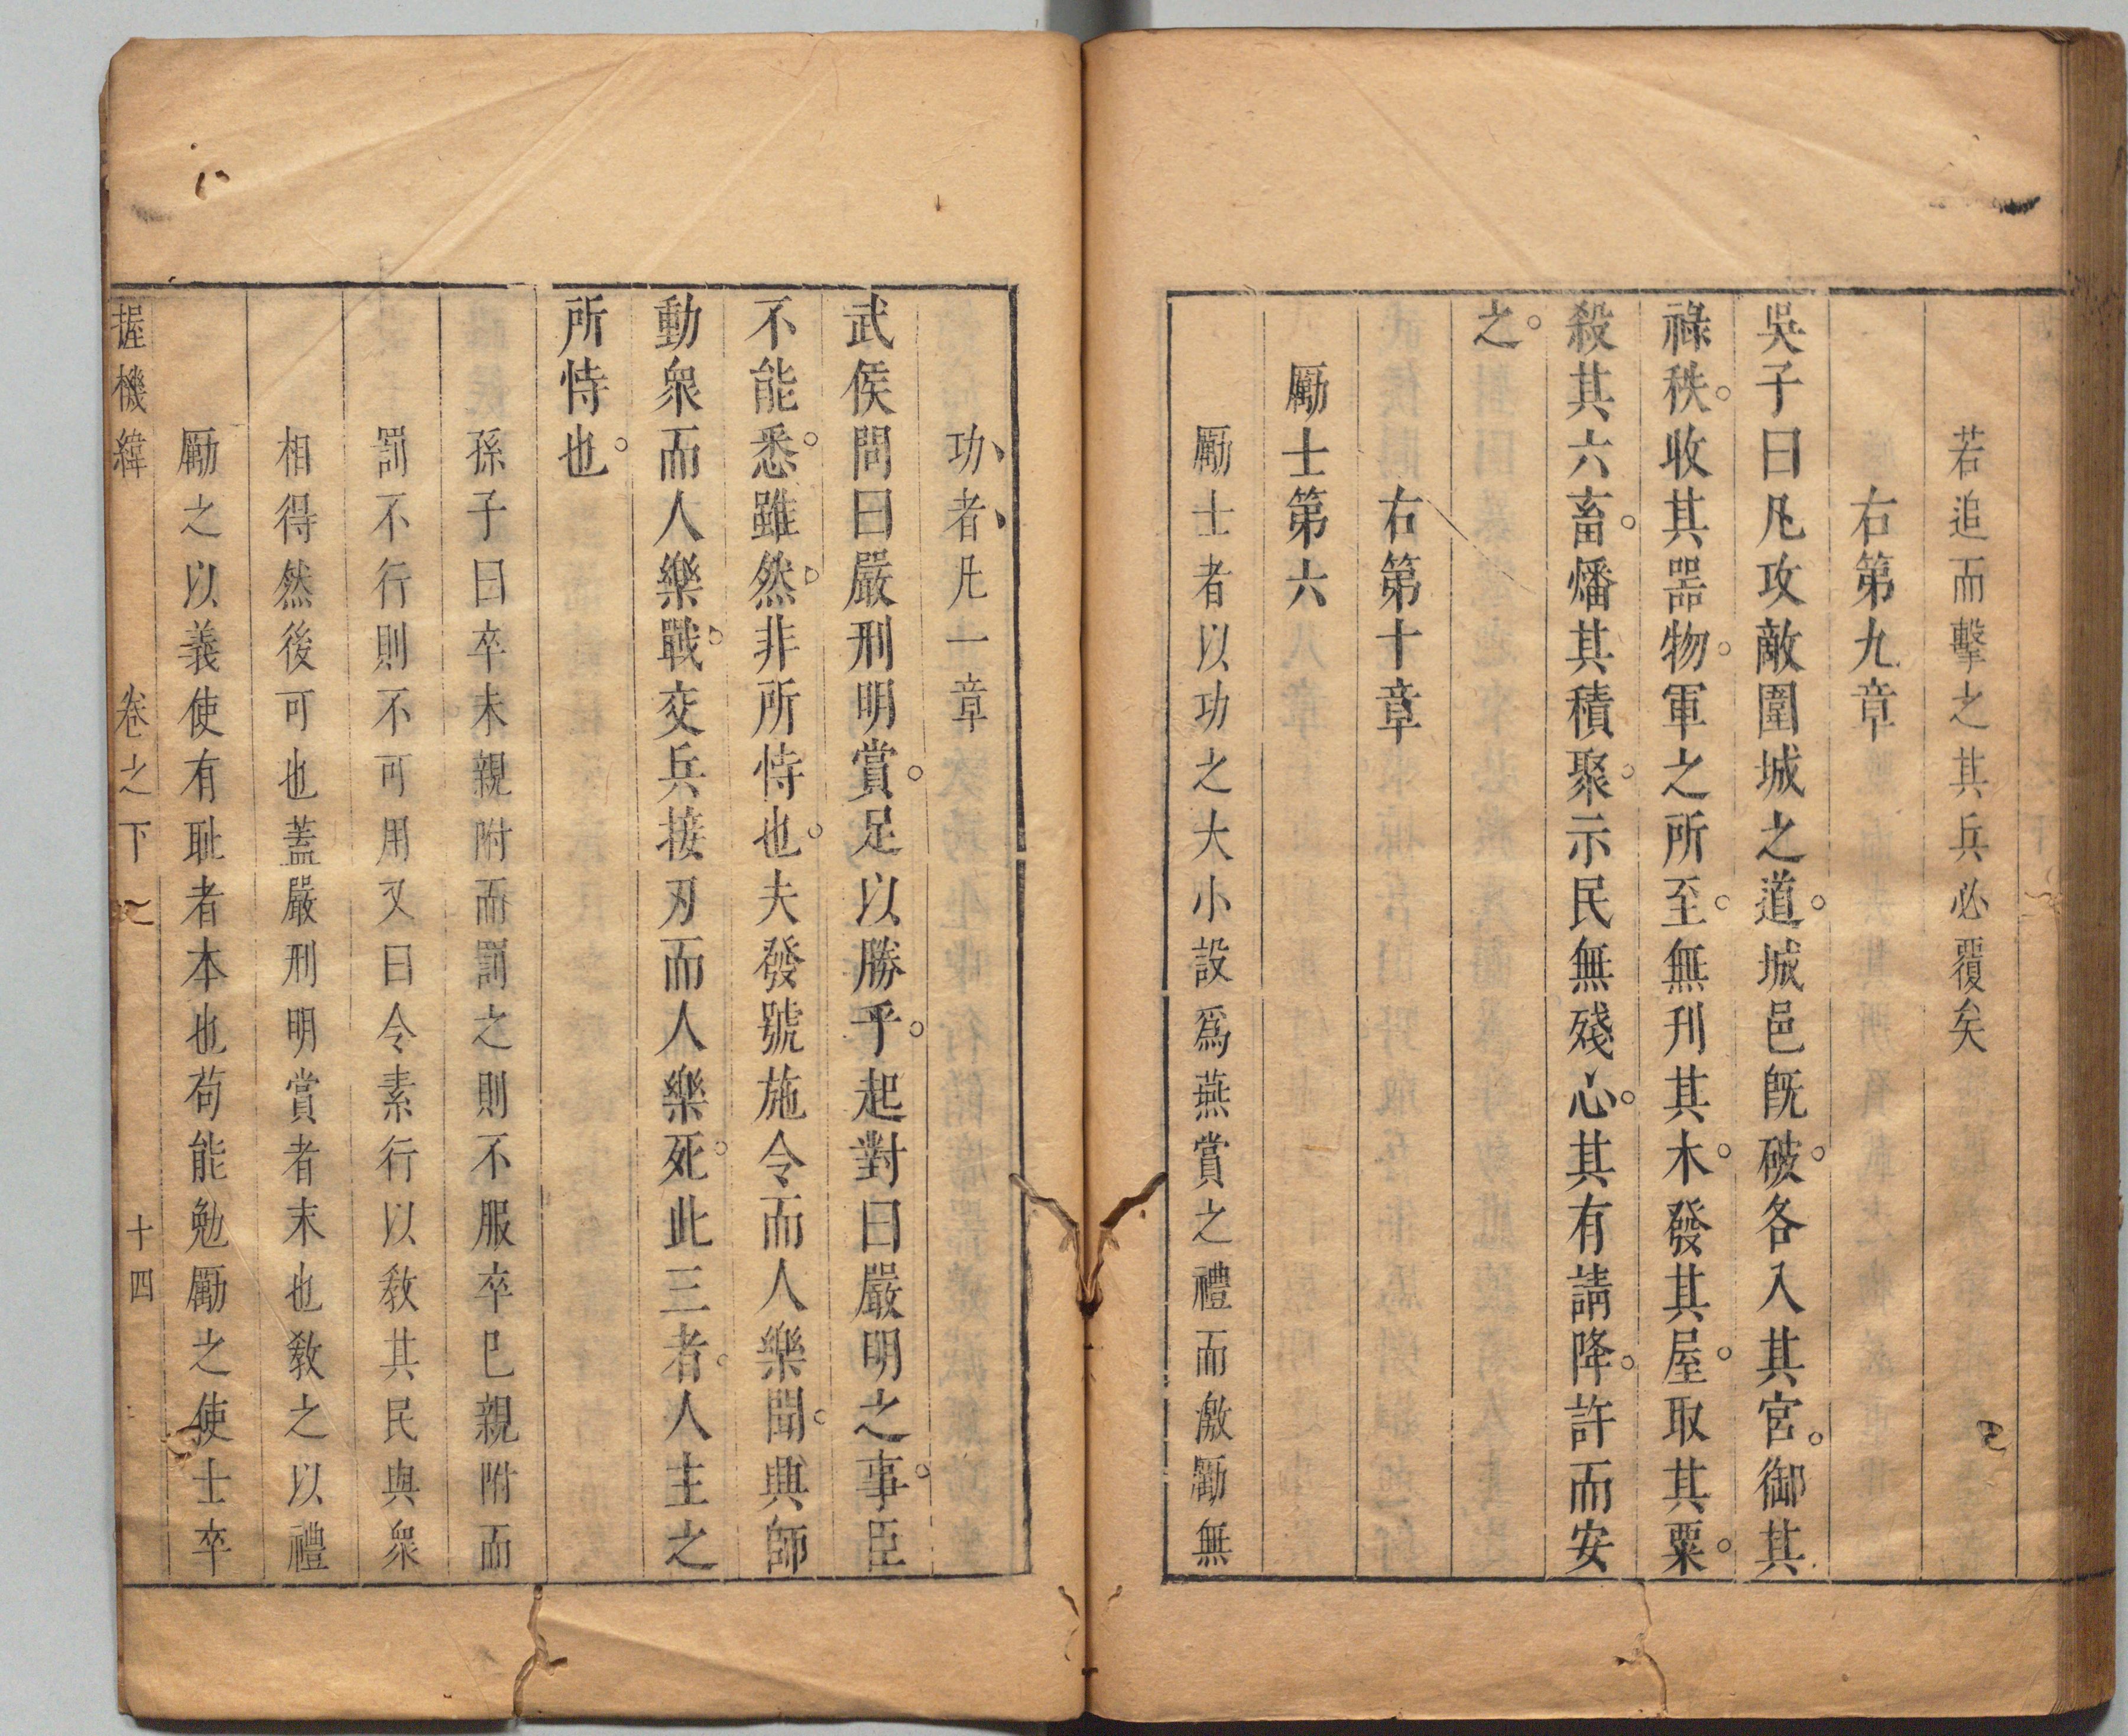 若追而擊之其兵必覆矣
右第九章
吳子曰凡攻敵圍城之道。城邑旣破。各入其宮。御其
祿秩。收其器物。軍之所至。無刋其木。發其屋。取其粟。
殺其六畜。燔其積聚。示民無殘心。其有請降。許而安
之。
右第十章
勵士第六
勵士者以功之大小設爲燕賞之禮而激勵無
功、者、凡一章
武侯問曰嚴刑明賞。足以勝乎。起對曰嚴明之事。臣
不能悉。雖然。非所恃也。夫發號施令而人樂聞。興師
動衆而人樂戰。交兵接刃而人樂死。此三者。人主之
所恃也。
孫子曰卒未親附而罰之則不服卒已親附而
罰不行則不可用又曰令素行以敎其民與衆
相得然後可也蓋嚴刑明賞者末也敎之以禮
勵之以義使有耻者本也苟能勉勵之使士卒
握機緯 卷之下 十四